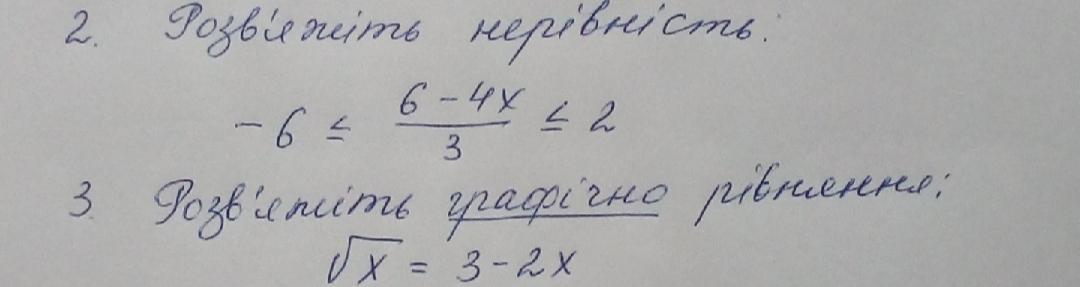 2. Розв'яжіть нерівність:
-6 ≤ (6-4x)/3 ≤ 2
3. Розв'яжіть графічно рівняння:
√x = 3-2x